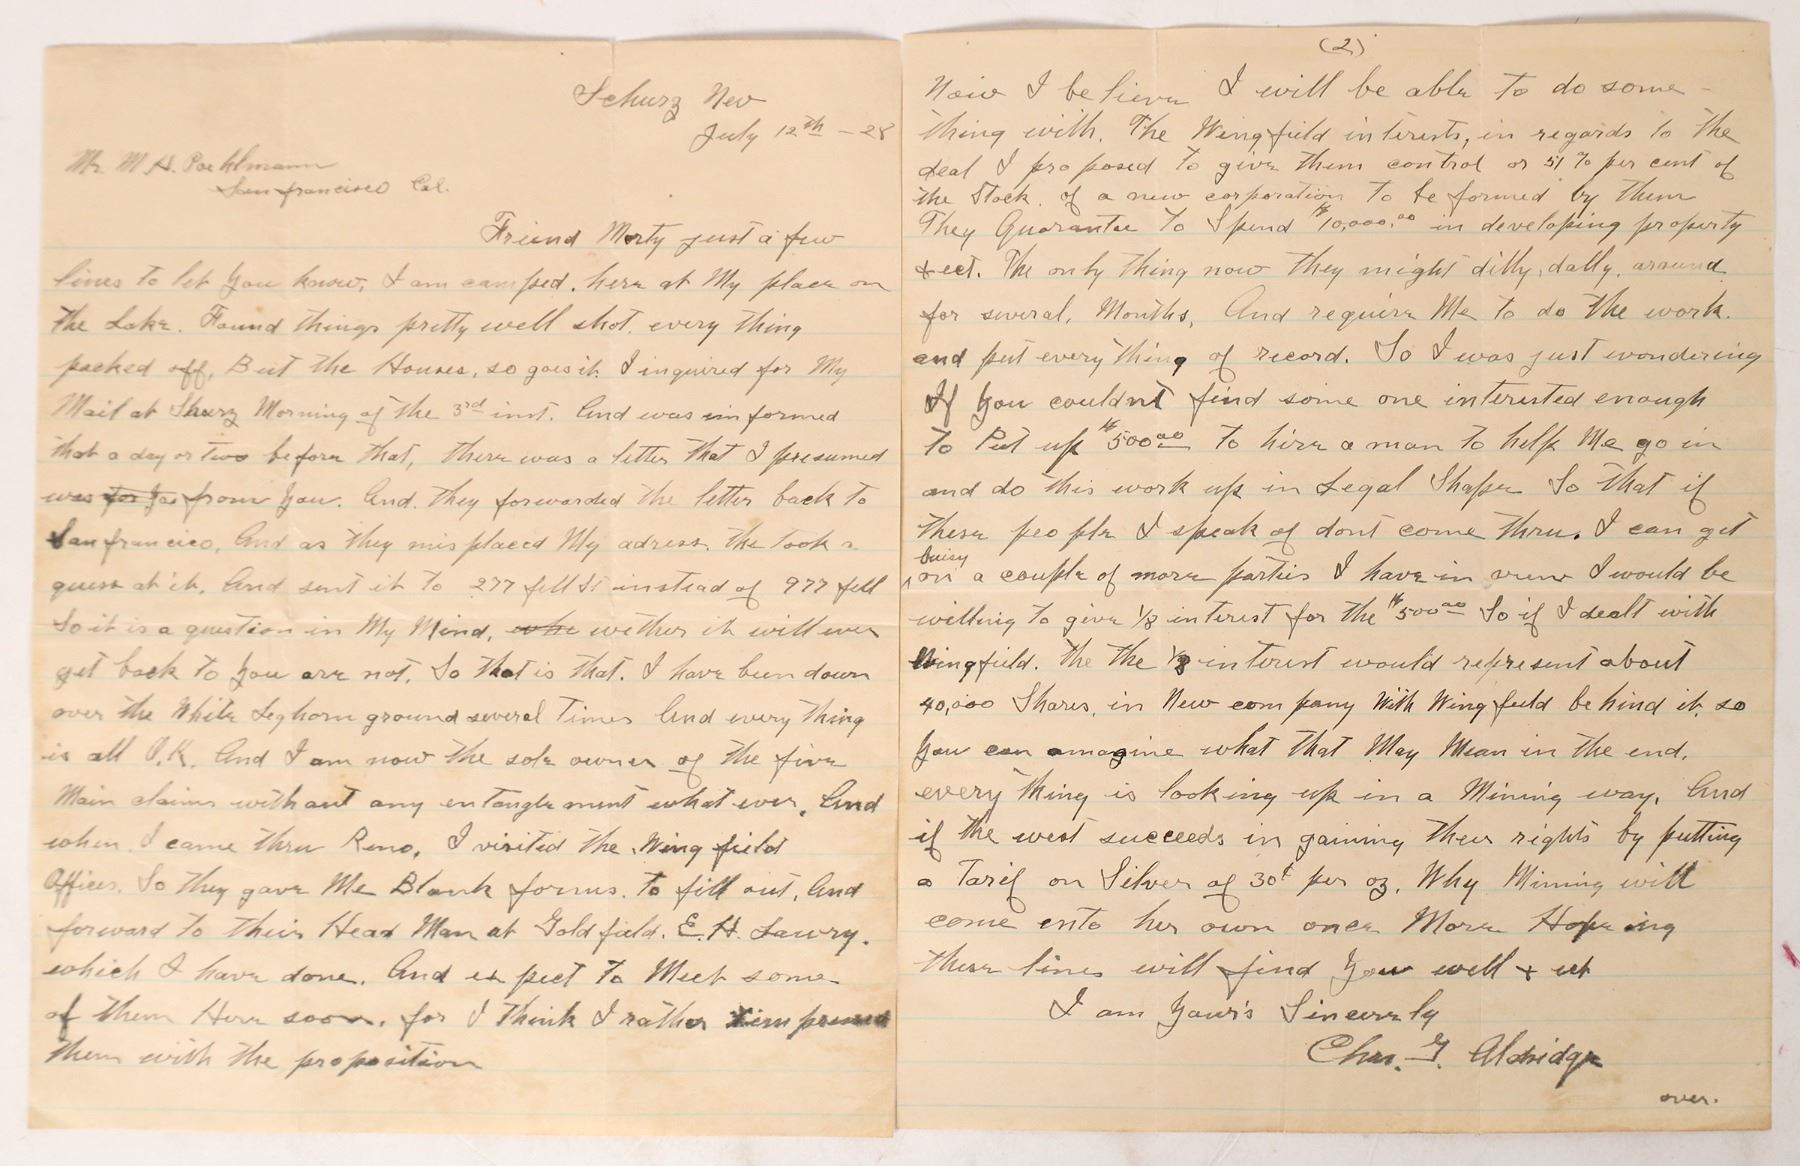 Schurz Nev
July 12th - 28
Mr. M H. Poehlmann
San francisco Cal.
Friend Morty just a few
lines to let you know, I am camped. here at My place on
the Lake. Found things pretty well shot. every thing
packed off, But the Houses, so goes it. I inquired for My
Mail at Shurz Morning of the 3rd inst. And was informed
that a day or two before that, there was a letter that I presumed
was for you from you. And. they forwarded the letter back to
San francico, And as they misplaced My adress. the took a
guess at it. And sent it to 277 fell St instead of 977 fell
So it is a question in My Mind, whe wether it will ever
get back to you are not. So that is that. I have been down
over the White Leghorn ground several Times And every thing
is all O.K. And I am now the sole owner of the five
Main claims without any entanglement what ever. And
when I came thru Reno, I visited the Wing field
Offices. So they gave Me Blank forms. to fill out, And
forward to their Head Man at Goldfield. E. H. Lawry.
which I have done. And expect To Meet some
of them Here soon. for I think I rather impressed
them with the proposition
(2)
Now I believe I will be able to do some -
thing with. The Wingfield interests, in regards to the
deal I proposed to give them control or 51 % per cent of
the Stock. of a new corporation to be formed by them
They Guarantee to Spend $10,000.00 in developing property
& ect. The only thing now they might dilly, dally, around
for several, Months, And require Me to do the work.
and put every thing of record. So I was just wondering
If you couldnt find some one interested enough
to Put up $500.00 to hire a man to help Me go in
and do this work up in Legal Shape So that if
these people I speak of dont come thru. I can get
buisy
on a couple of more parties I have in view I would be
willing to give 1/8 interest for the $500.00 So if I dealt with
Wingfield. the the 1/8 interest would represent about
40,000 Shares, in New company with Wing field behind it, so
you can amagine what that May Mean in the end.
every thing is looking up in a Mining way. And
if the west succeeds in gaining their rights by putting
a Tarif on Silver of 30¢ per oz, Why Mining will
come ento her own once More Hopeing
these lines will find you well & ect
I am Your's Sincerely
Chas. G. Aldridge
over.